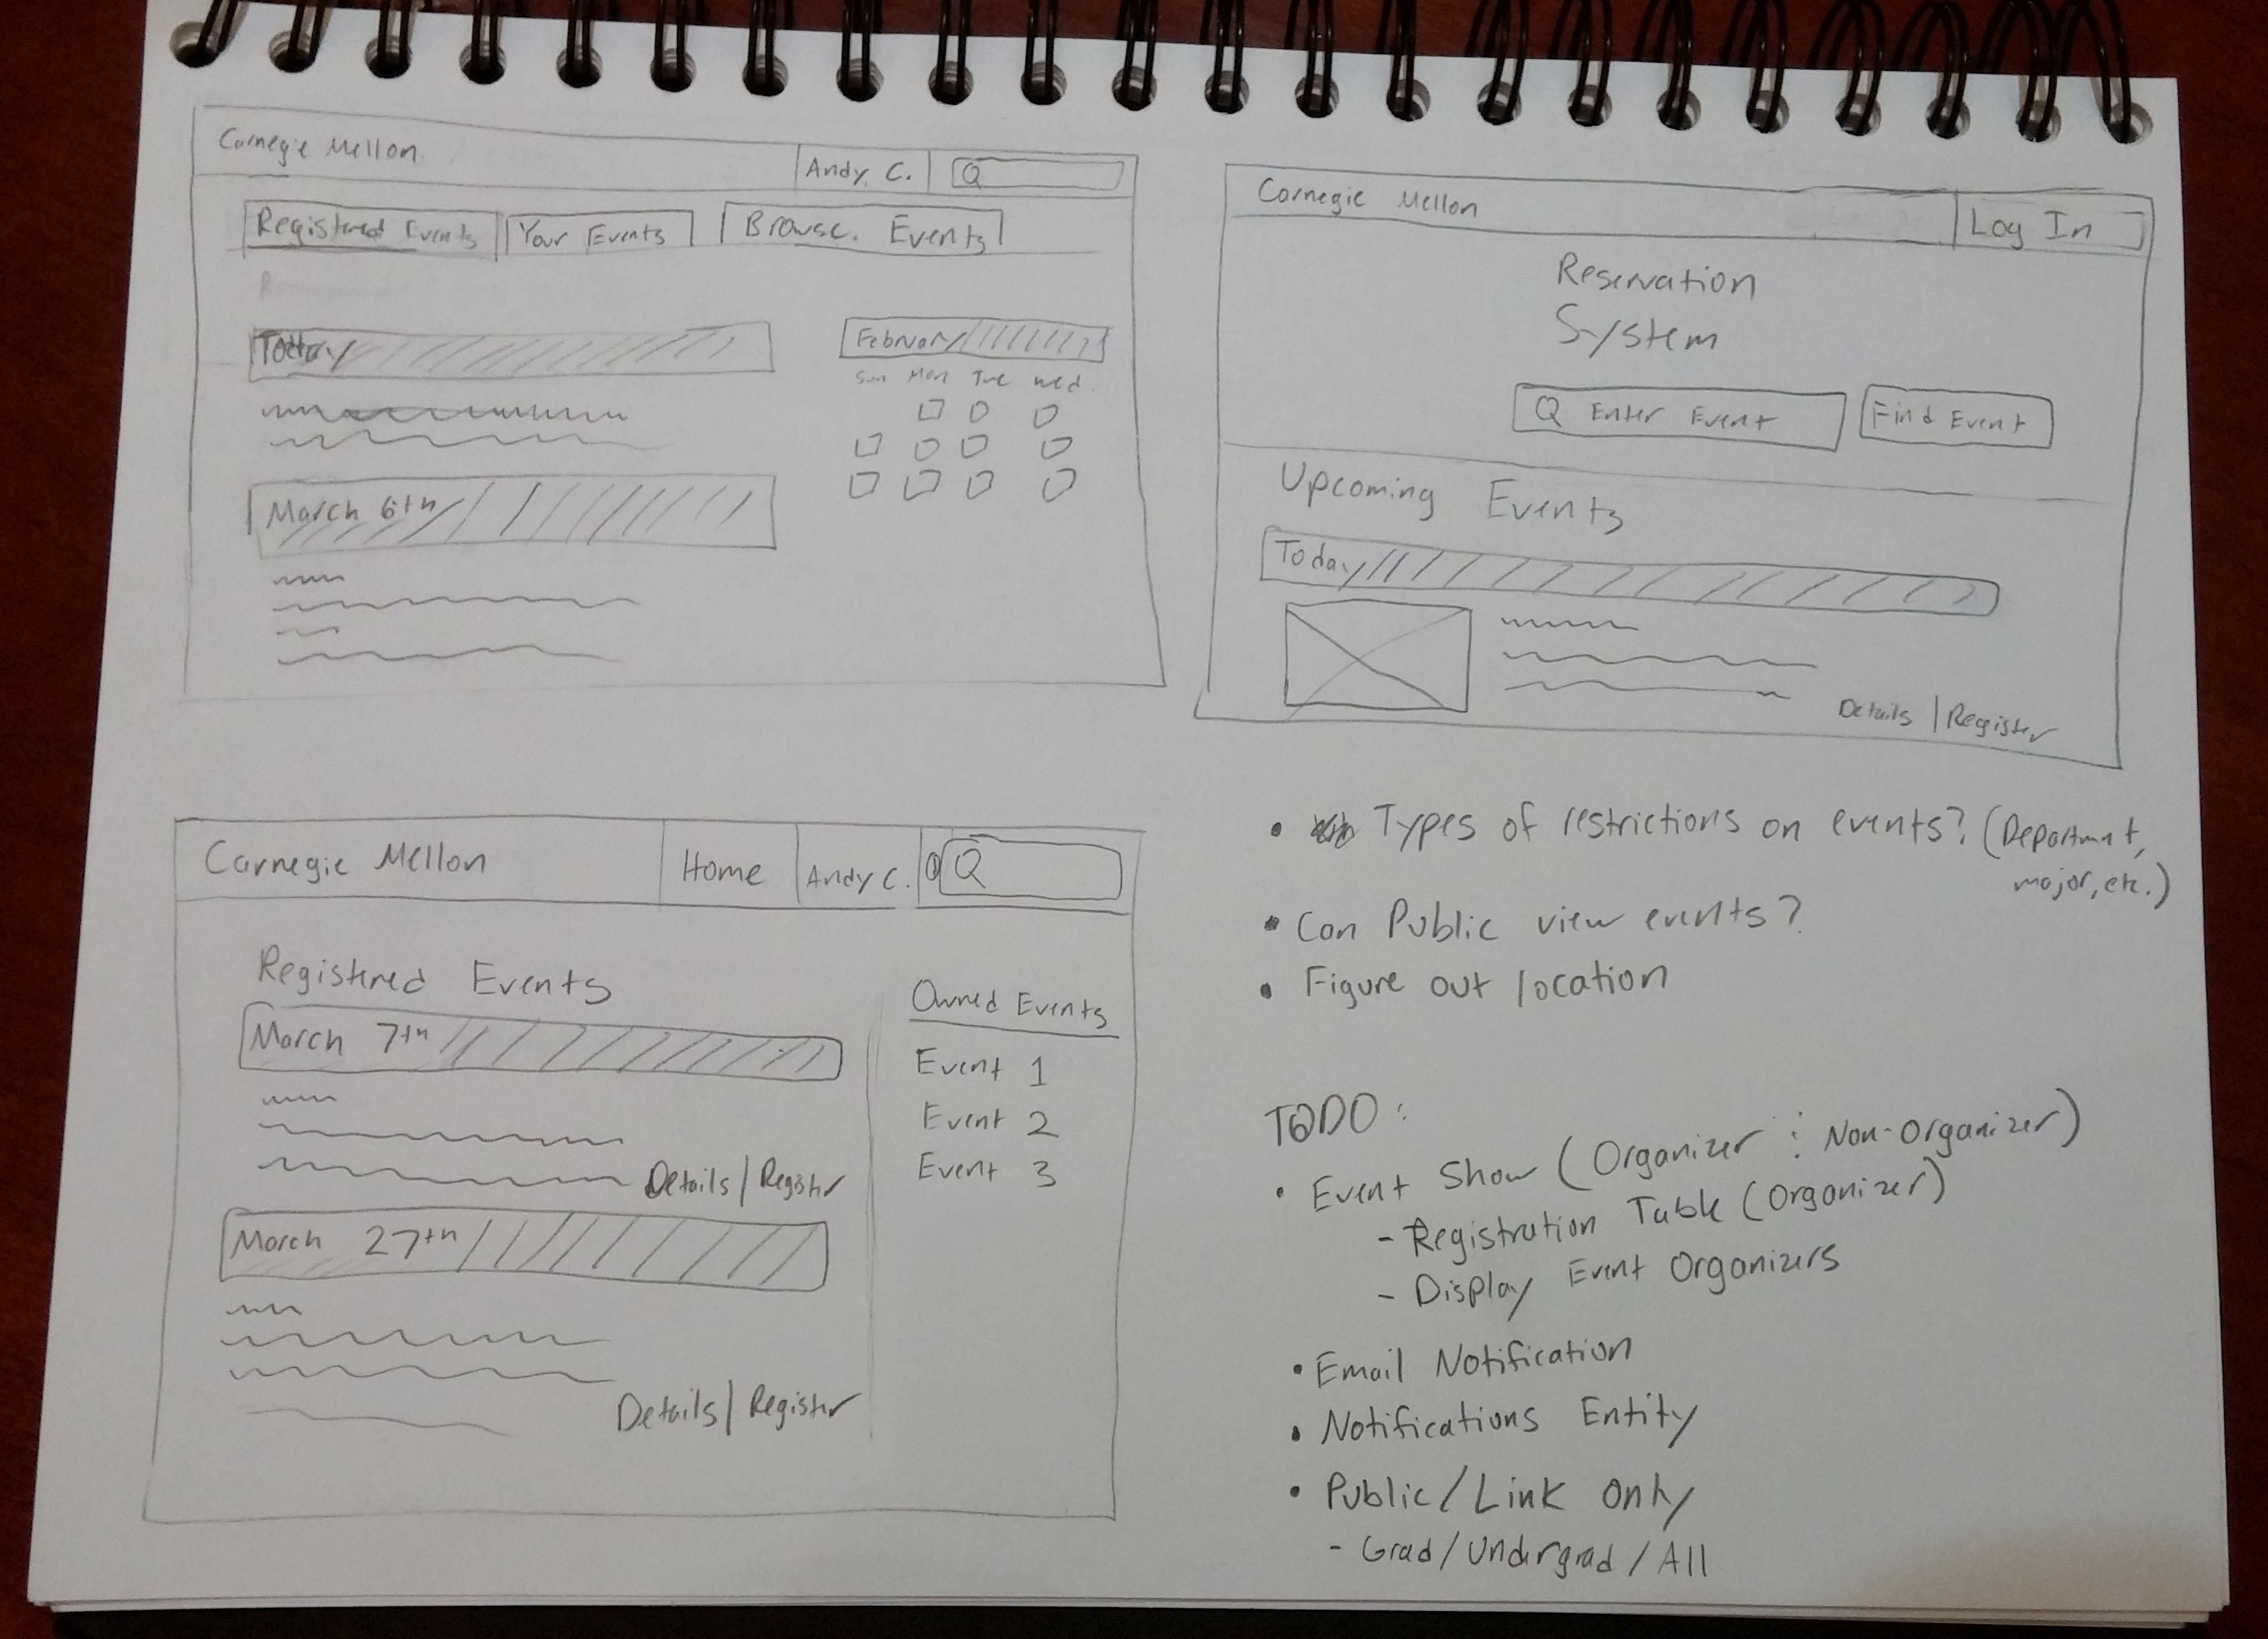 Carnegie Mellon
Andy C.
Registered Events
Your Events
Browse Events
Today
February
Sun Mon Tue Wed
March 6th
Carnegie Mellon
Log In
Reservation
System
Enter Event
Find Event
Upcoming Events
Today
Details | Register
Carnegie Mellon
Home
Andy C.
Registered Events
March 7th
Details | Register
March 27th
Details | Register
Owned Events
Event 1
Event 2
Event 3
• Types of restrictions on events? (Department,
major, etc.)
• Can Public view events?
• Figure out location
TODO:
• Event Show (Organizer : Non-Organizer)
- Registration Table (Organizer)
- Display Event Organizers
• Email Notification
• Notifications Entity
• Public/Link Only
- Grad/Undergrad/All